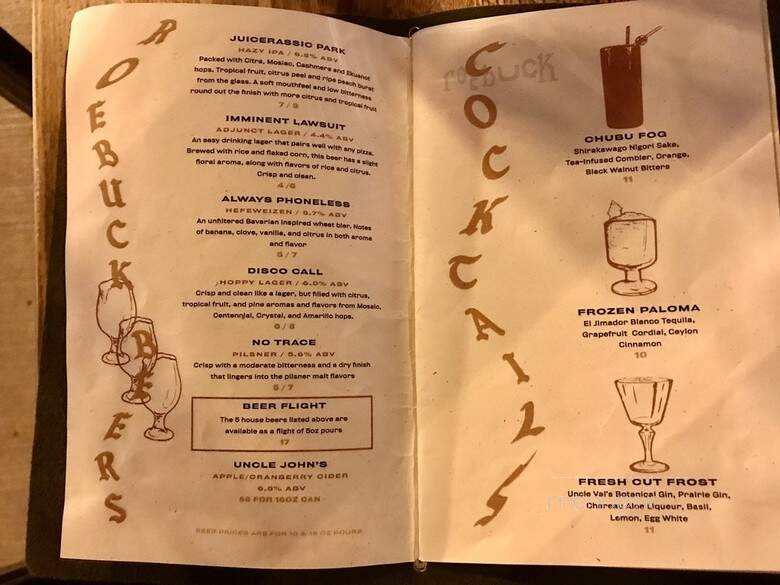 ROEBUCK
BEERS
JUICERASSIC PARK
HAZY IPA / 6.8% ABV
Packed with Citra, Mosiac, Cashmere and Ekuanot
hops. Tropical fruit, citrus peel and ripe peach burst
from the glass. A soft mouthfeel and low bitterness
round out the finish with more citrus and tropical fruit
7 / 9
IMMINENT LAWSUIT
ADJUNCT LAGER / 4.4% ABV
An easy drinking lager that pairs well with any pizza.
Brewed with rice and flaked corn, this beer has a slight
floral aroma, along with flavors of rice and citrus.
Crisp and clean.
4 / 6
ALWAYS PHONELESS
HEFEWEIZEN / 5.7% ABV
An unfiltered Bavarian inspired wheat bier. Notes
of banana, clove, vanilla, and citrus in both aroma
and flavor
5 / 7
DISCO CALL
HOPPY LAGER / 6.0% ABV
Crisp and clean like a lager, but filled with citrus,
tropical fruit, and pine aromas and flavors from Mosaic,
Centennial, Crystal, and Amarillo hops.
6 / 8
NO TRACE
PILSNER / 5.6% ABV
Crisp with a moderate bitterness and a dry finish
that lingers into the pilsner malt flavors
5 / 7
BEER FLIGHT
The 5 house beers listed above are
available as a flight of 5oz pours
17
UNCLE JOHN'S
APPLE/CRANBERRY CIDER
6.5% ABV
$6 FOR 16OZ CAN
BEER PRICES ARE FOR 10 & 16 OZ POURS
COCKTAILS
roebuck
CHUBU FOG
Shirakawago Nigori Sake,
Tea-Infused Combier, Orange,
Black Walnut Bitters
11
FROZEN PALOMA
El Jimador Blanco Tequila,
Grapefruit Cordial, Ceylon
Cinnamon
10
FRESH CUT FROST
Uncle Val's Botanical Gin, Prairie Gin,
Chareau Aloe Liqueur, Basil,
Lemon, Egg White
11